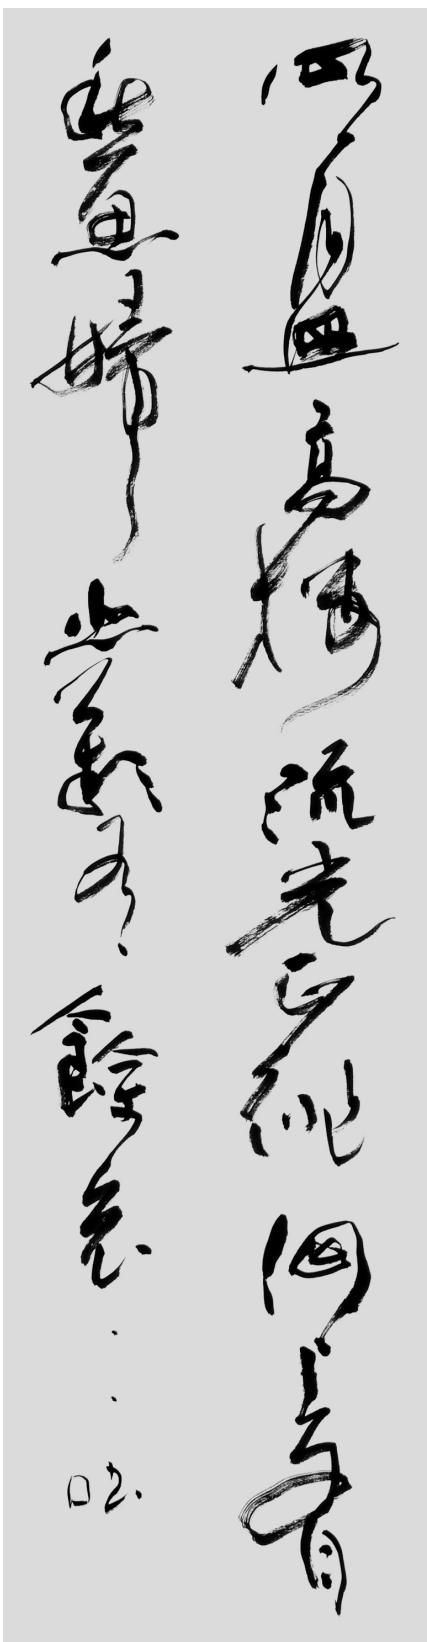 明月照高樓流光正徘徊上有
愁思婦悲歎有餘哀